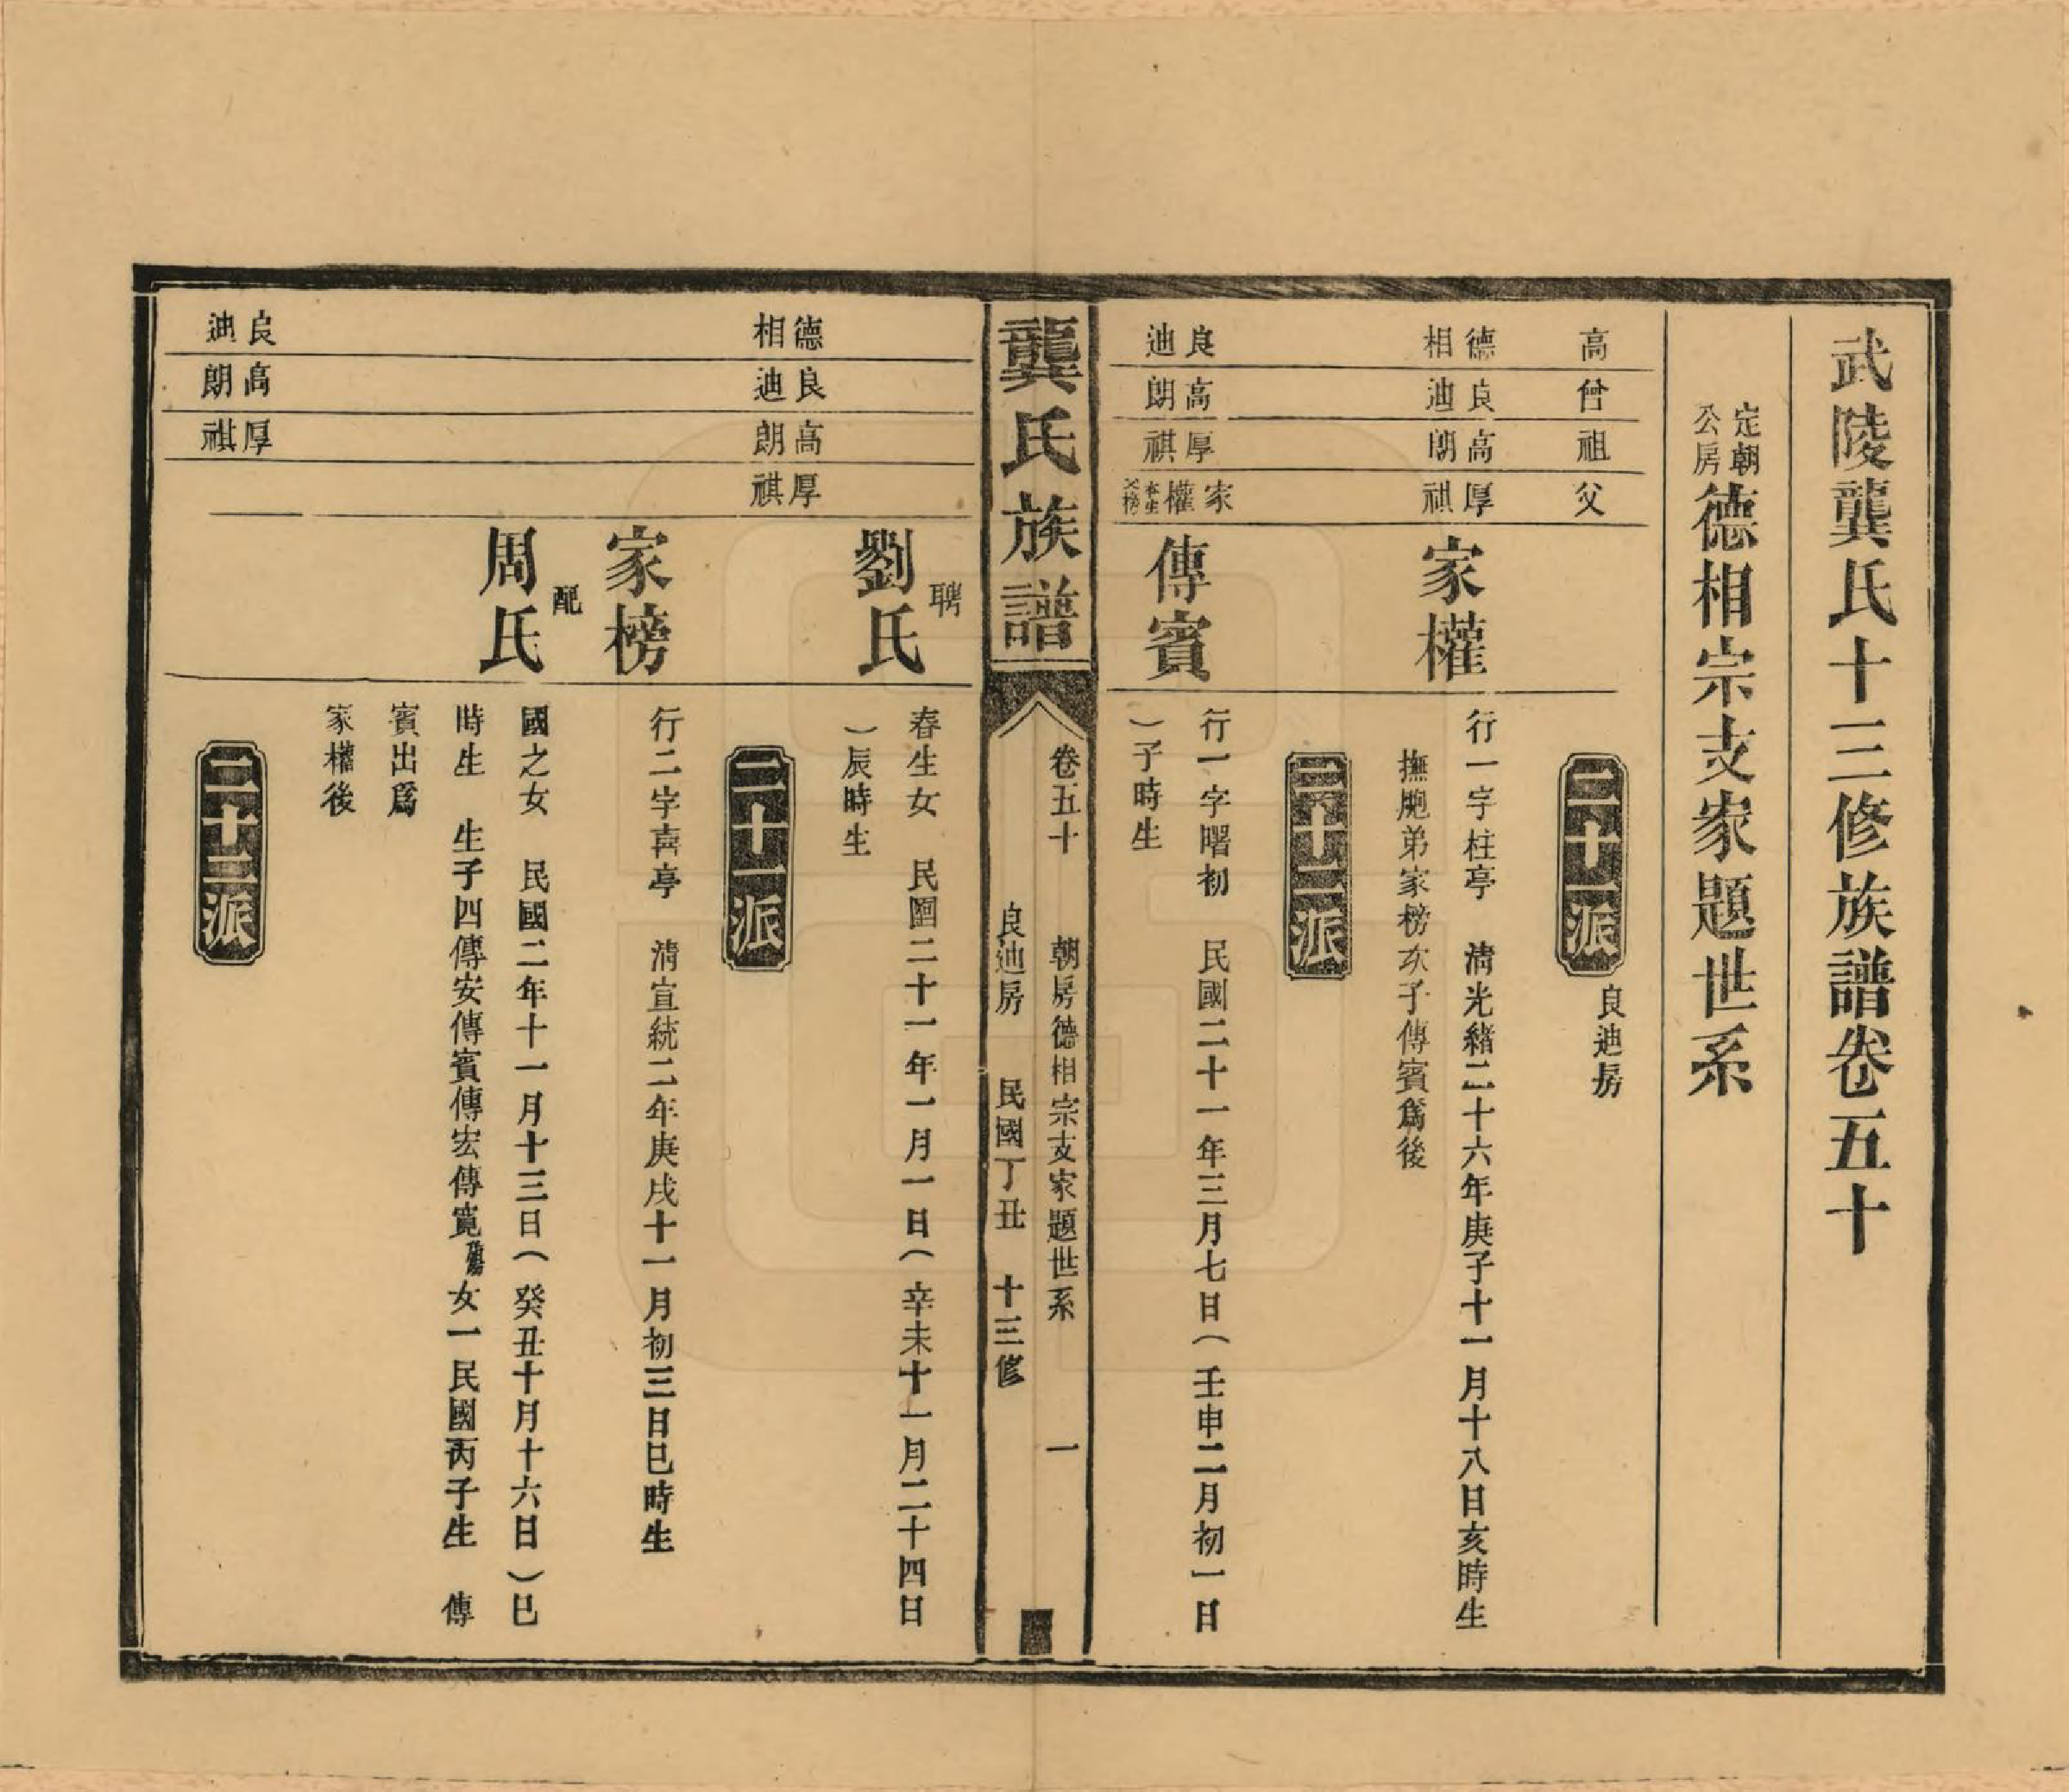 武陵龔氏十三修族譜卷五十
定朝公房德相宗支家題世系
高
曾
祖
父
二十一派
良迪房
德相
良迪
高朗
厚祺
家權
行一字柱亭　清光緒二十六年庚子十一月十八日亥時生
撫胞弟家榜次子傳賓爲後
二十二派
良迪
高朗
厚祺
家權本生父榜
傳賓
行一字曙初　民國二十一年三月七日（壬申二月初一日
）子時生
龔氏族譜
卷五十　朝房德相宗支家題世系　一
良迪房　民國丁丑　十三修
聘
劉氏
春生女　民國二十一年一月一日（辛未十一月二十四日
）辰時生
二十一派
德相
良迪
高朗
厚祺
家榜
行二字喜亭　清宣統二年庚戌十一月初三日巳時生
配
周氏
國之女　民國二年十一月十三日（癸丑十月十六日）巳
時生　生子四傳安傳賓傳宏傳寬女一民國丙子生　傳
賓出爲
家權後
二十二派
良迪
高朗
厚祺